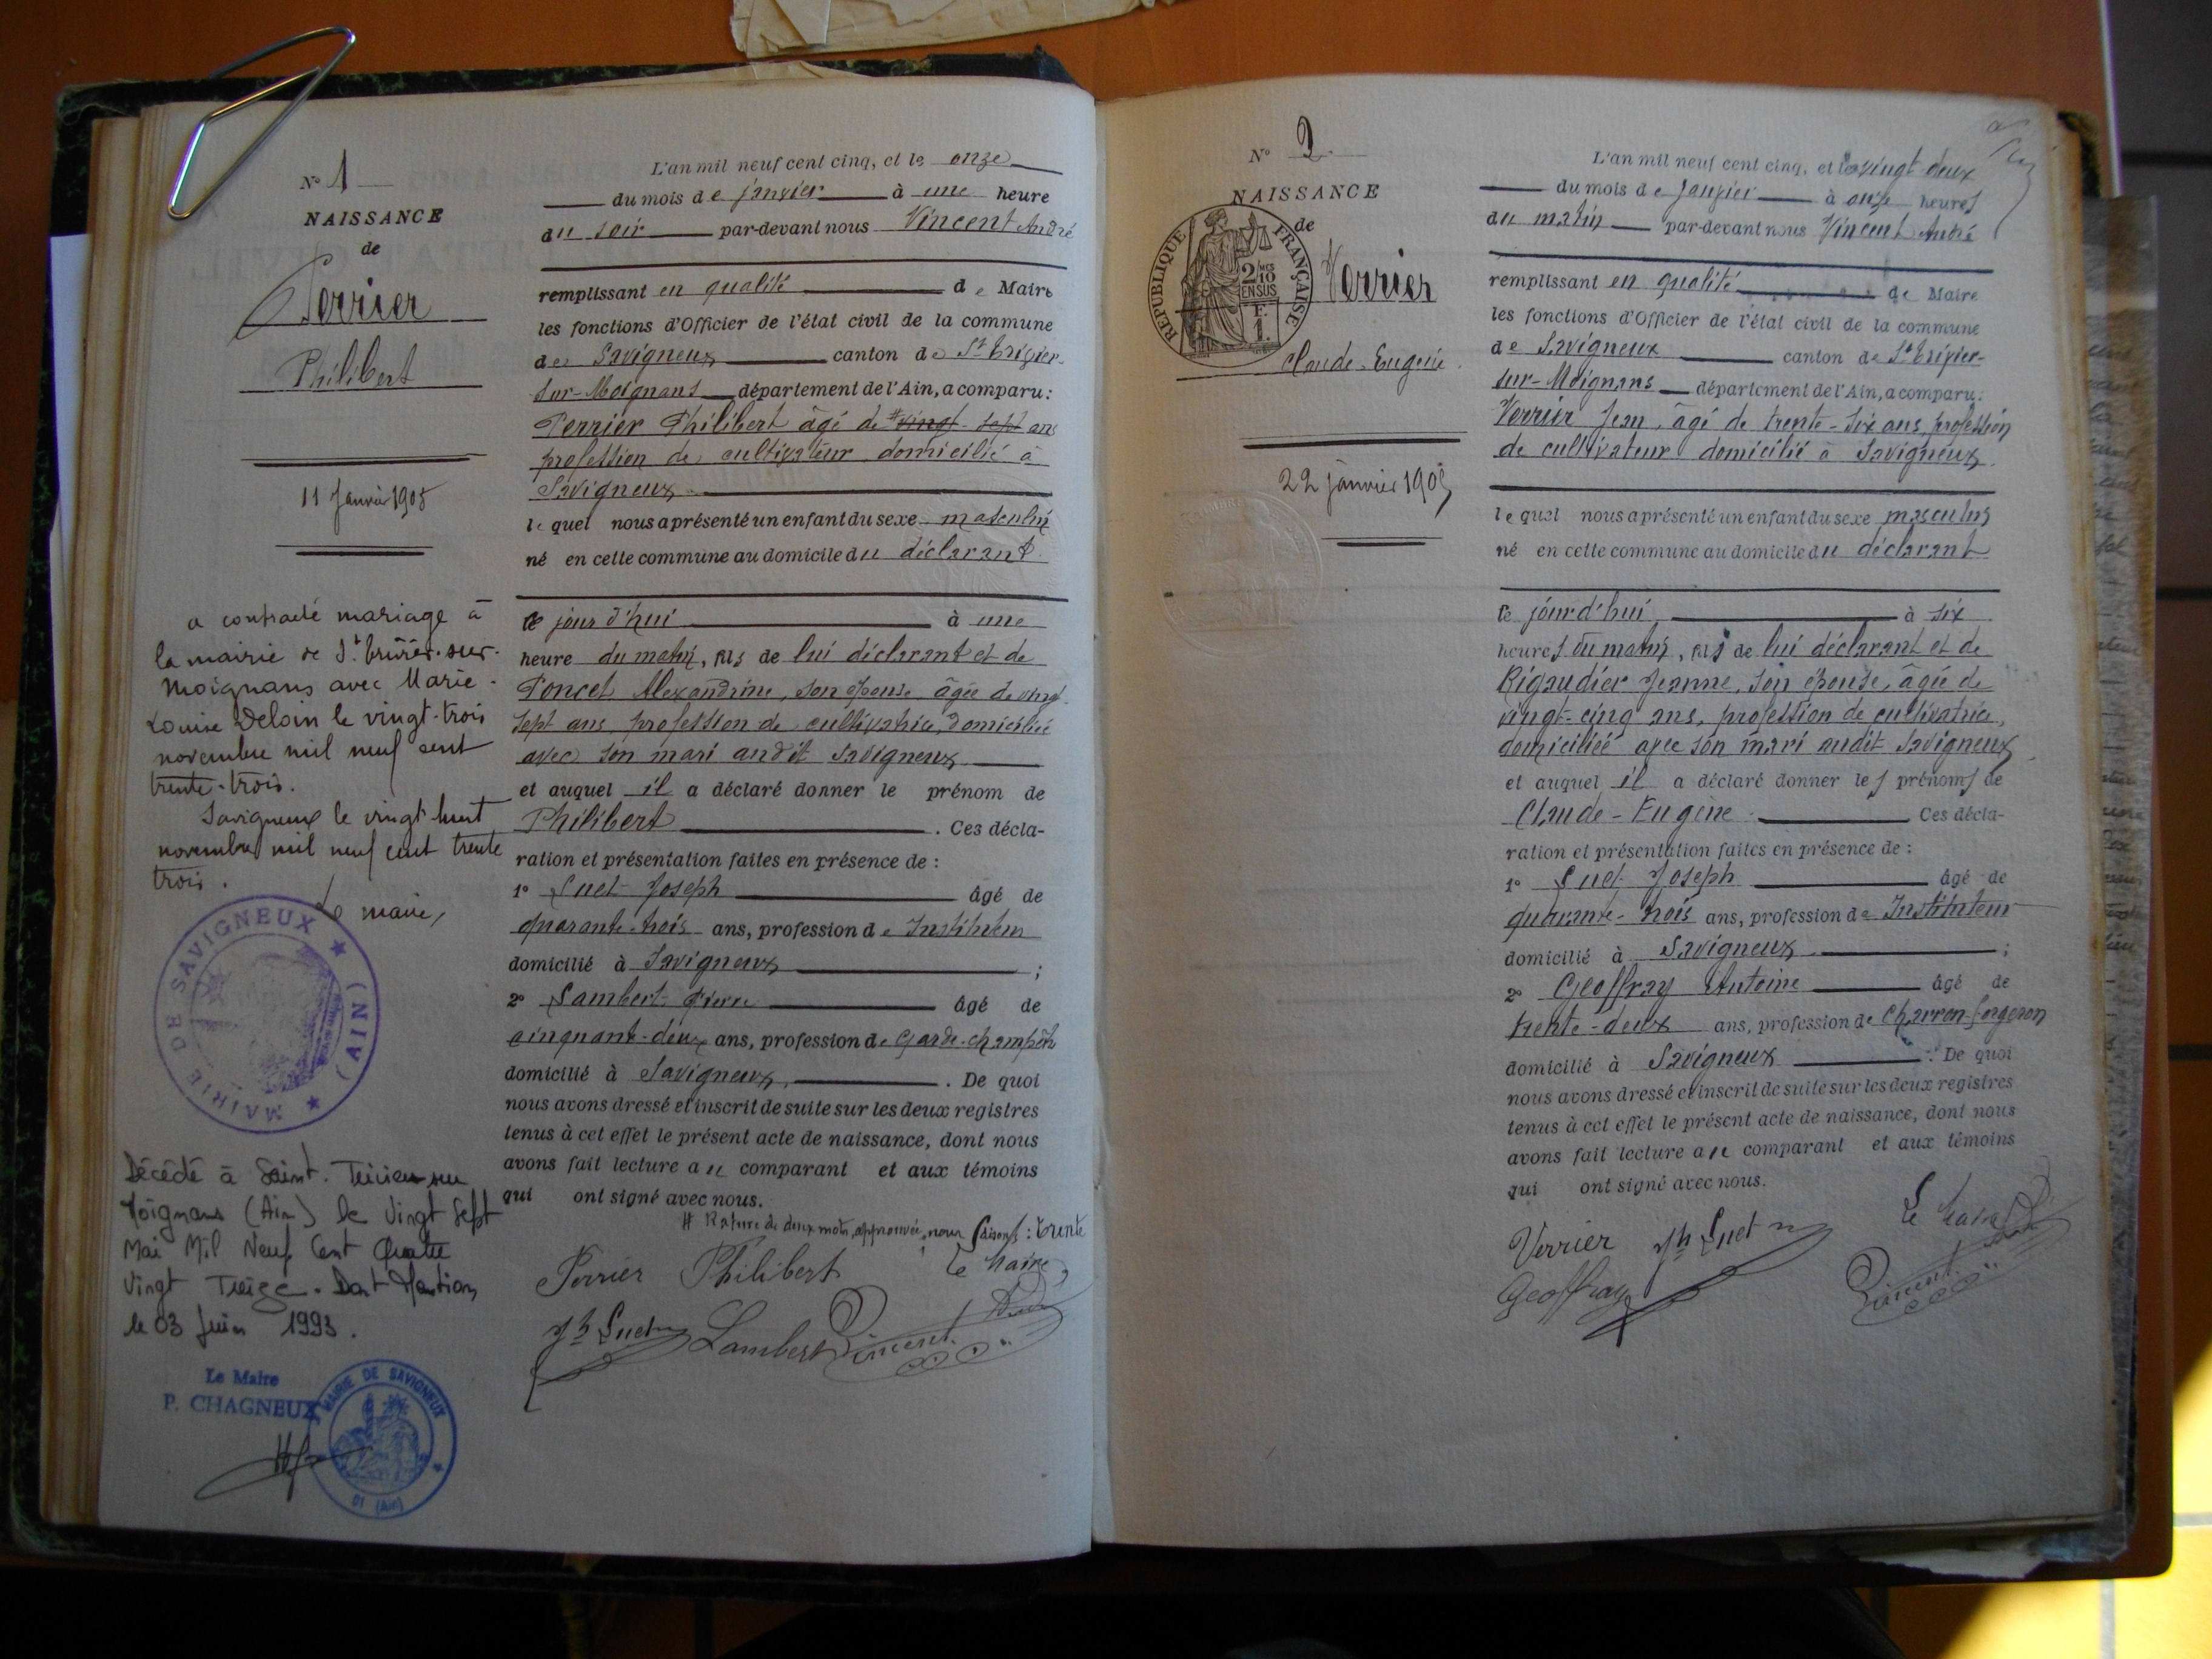 N° 1
NAISSANCE
de
Perrier
Philibert
11 Janvier 1905
a contracté mariage à
la mairie de St Trivier-sur-
Moignans avec Marie-
Louise Deloin le vingt-trois
novembre mil neuf cent
trente-trois.
Savigneux le vingt huit
novembre mil neuf cent trente
trois.
Le maire,
MAIRIE DE SAVIGNEUX ★ (AIN) ★
Décédé à Saint-Trivier sur
Moignans (Ain) le Vingt Sept
Mai Mil Neuf Cent Quatre
Vingt Treize. Dont Mention
le 03 Juin 1993.
Le Maire
P. CHAGNEUX
MAIRIE DE SAVIGNEUX
01 (Ain)
L'an mil neuf cent cinq, et le onze
du mois de janvier à une heure
du soir par-devant nous Vincent André
remplissant en qualité de Maire
les fonctions d'Officier de l'état civil de la commune
de Savigneux canton de St Trivier-
sur-Moignans département de l'Ain, a comparu:
Perrier Philibert âgé de # vingt-sept ans
profession de cultivateur domicilié à
Savigneux
lequel nous a présenté un enfant du sexe masculin
né en cette commune au domicile du déclarant
ce jour d'hui à une
heure du matin, fils de lui déclarant et de
Poncet Alexandrine, son épouse âgée de vingt
sept ans, profession de cultivatrice, domiciliée
avec son mari audit Savigneux
et auquel il a déclaré donner le prénom de
Philibert. Ces décla-
ration et présentation faites en présence de :
1° Suet Joseph âgé de
quarante-trois ans, profession de Instituteur
domicilié à Savigneux ;
2° Lambert Pierre âgé de
cinquant-deux ans, profession de Garde-champêtre
domicilié à Savigneux. De quoi
nous avons dressé et inscrit de suite sur les deux registres
tenus à cet effet le présent acte de naissance, dont nous
avons fait lecture au comparant et aux témoins
qui ont signé avec nous.
# Rature de deux mots approuvée, nous disons : trente
Le Maire,
Perrier Philibert
Jh Suet Lambert Vincent
N° 2
NAISSANCE
de
RÉPUBLIQUE FRANÇAISE
2/10 MES
EN SUS
F.
1.
Verrier
Claude-Eugène
22 janvier 1905
L'an mil neuf cent cinq, et le vingt-deux
du mois de janvier à onze heures
du matin par-devant nous Vincent André
remplissant en qualité de Maire
les fonctions d'Officier de l'état civil de la commune
de Savigneux canton de St Trivier-
sur-Moignans département de l'Ain, a comparu:
Verrier Jean, âgé de trente-six ans, profession
de cultivateur domicilié à Savigneux
lequel nous a présenté un enfant du sexe masculin
né en cette commune au domicile du déclarant
ce jourd'hui à six
heures du matin, fils de lui déclarant et de
Rigaudier Jeanne, son épouse, âgée de
vingt-cinq ans, profession de cultivatrice,
domiciliée avec son mari audit Savigneux
et auquel il a déclaré donner les prénoms de
Claude-Eugène. Ces décla-
ration et présentation faites en présence de :
1° Suet Joseph âgé de
quarante-trois ans, profession de Instituteur
domicilié à Savigneux ;
2° Geoffray Antoine âgé de
trente-deux ans, profession de Charron-forgeron
domicilié à Savigneux. De quoi
nous avons dressé et inscrit de suite sur les deux registres
tenus à cet effet le présent acte de naissance, dont nous
avons fait lecture au comparant et aux témoins
qui ont signé avec nous.
Verrier Jh Suet Le Maire
Geoffray Vincent